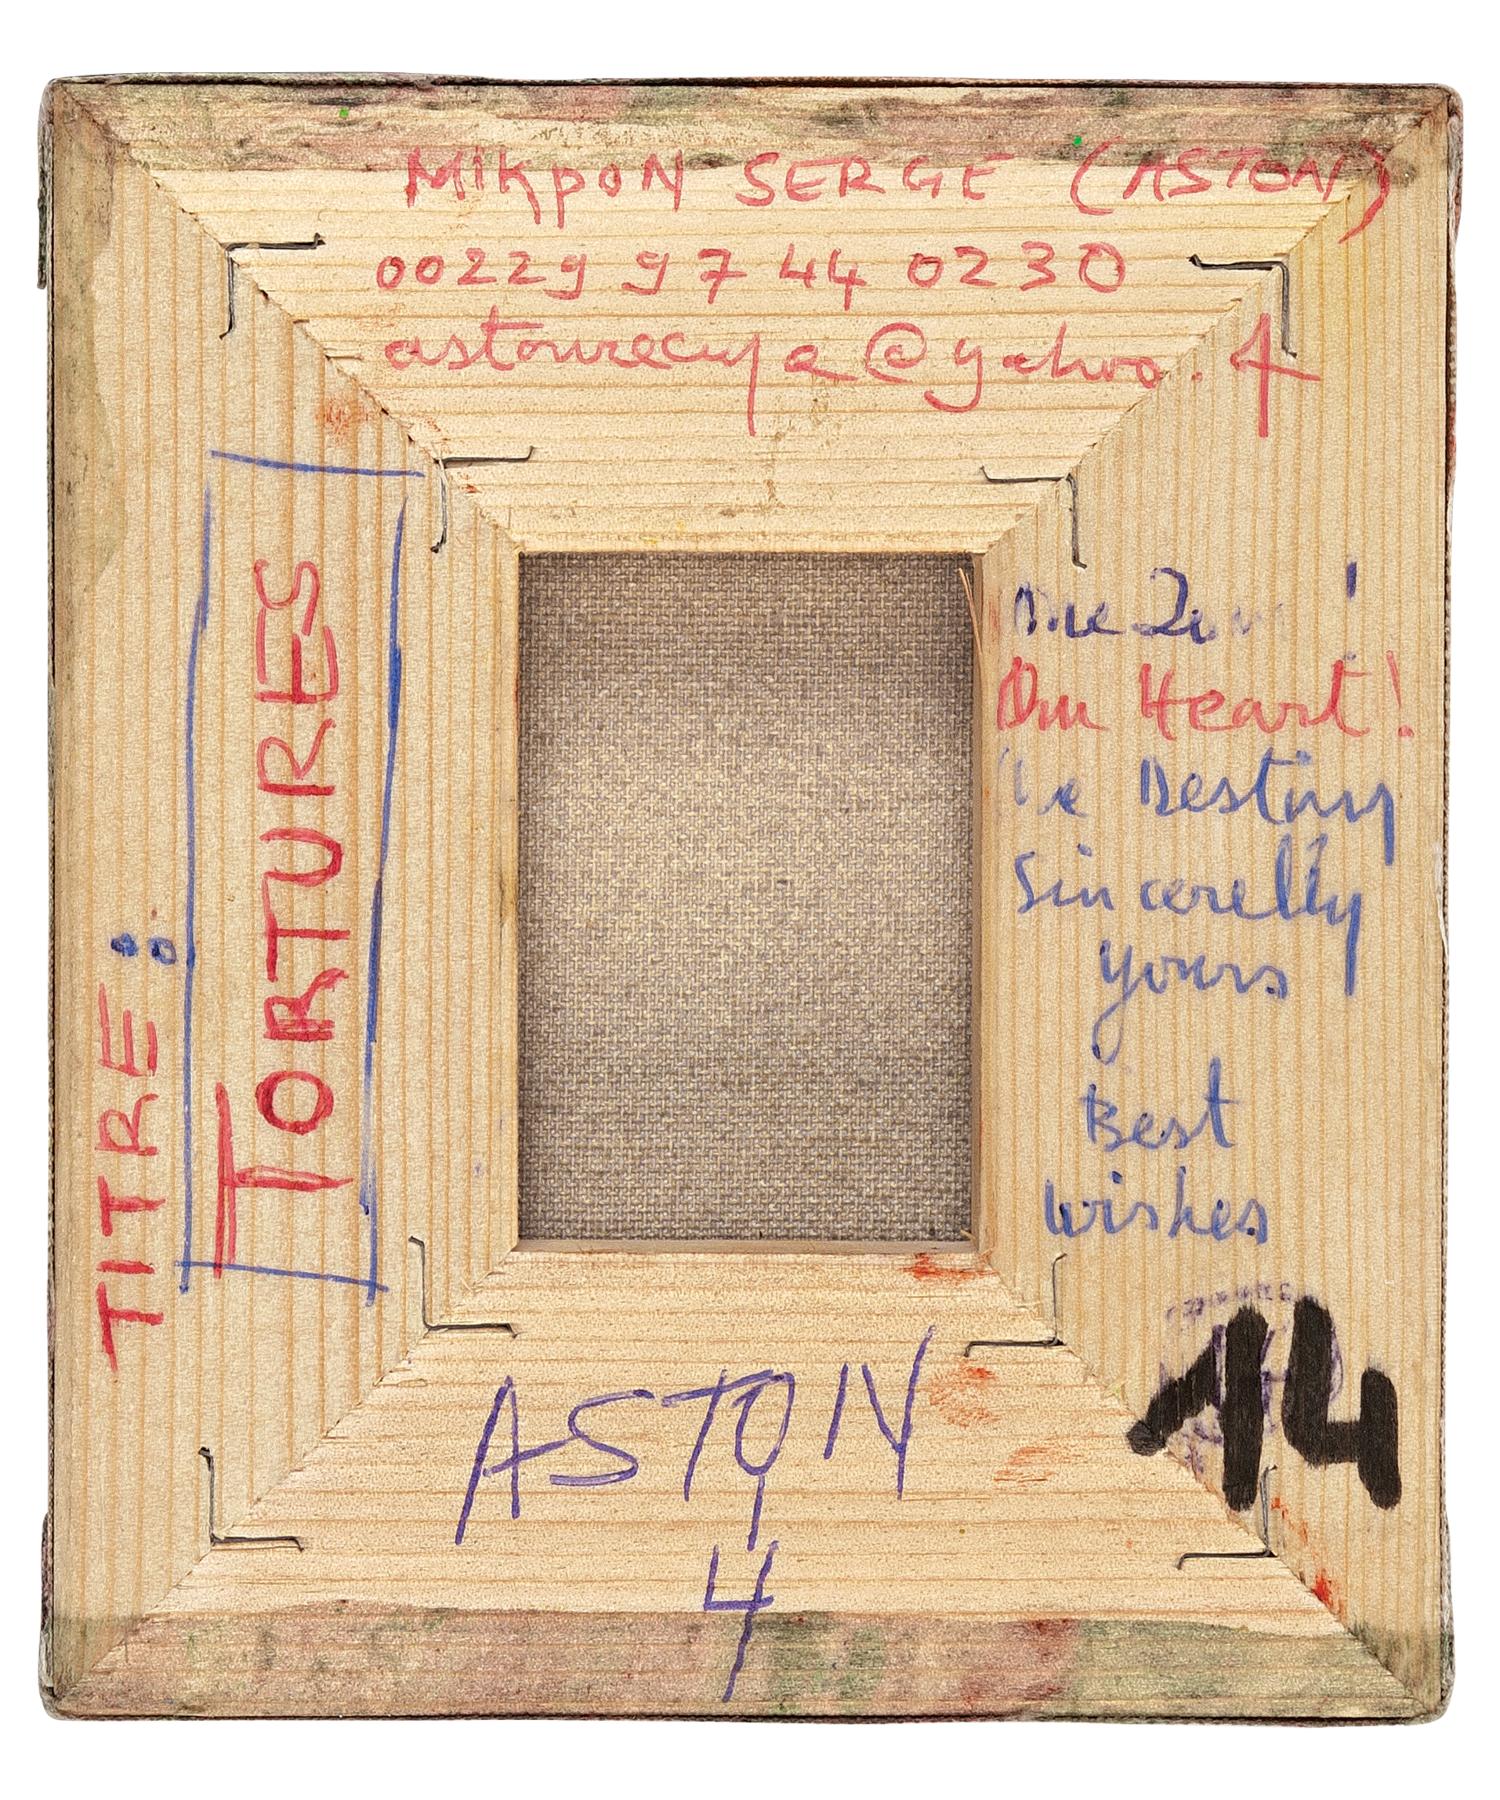 MIKPON SERGE (ASTON)
00229 97 44 0230
@yahoo.f
TITRE :
TORTURES
One
One Heart!
One Destiny
Sincerelly
yours
Best
wishes
14
ASTON
4